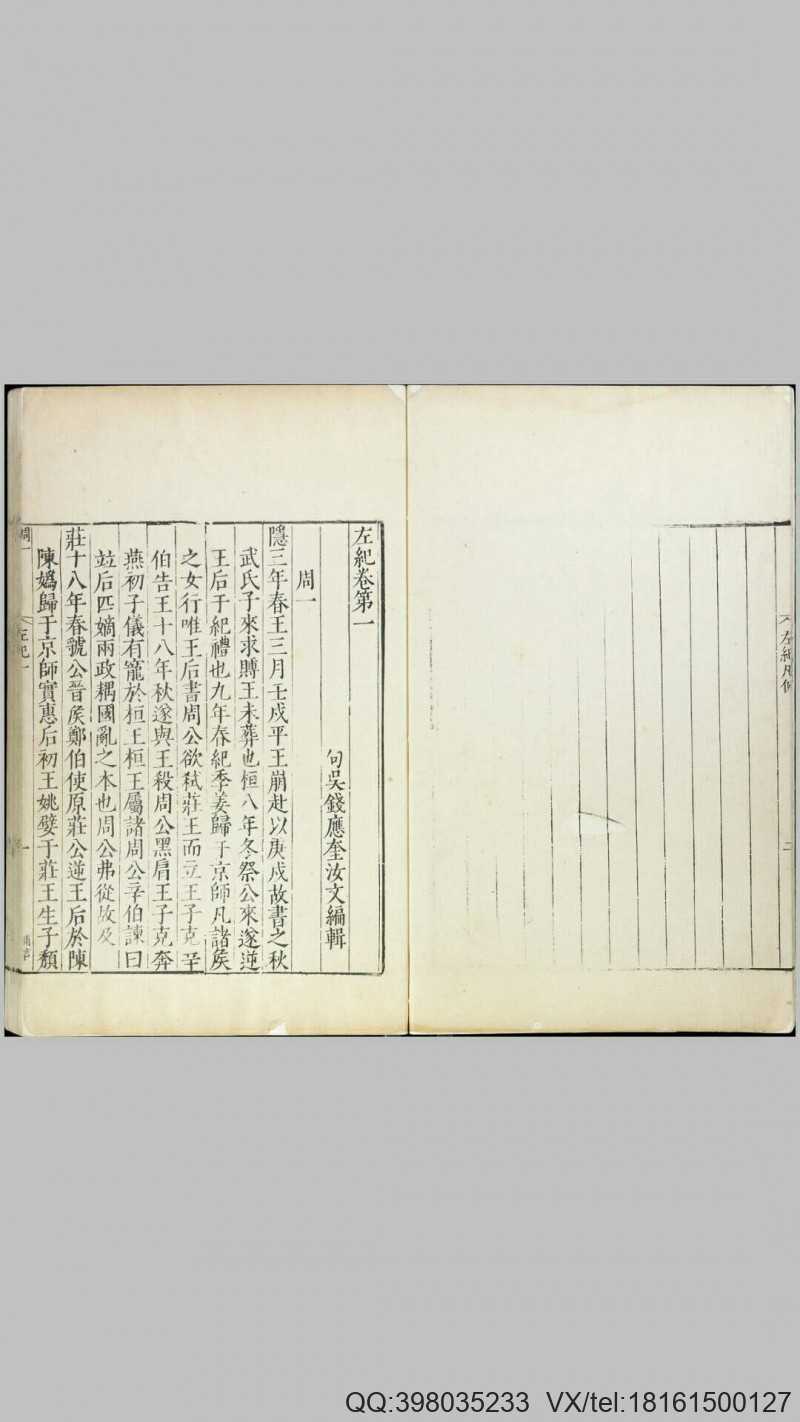 左紀凡例
二
左紀卷第一
句吳錢應奎汝文編輯
周一
隱三年春王三月壬戌平王崩赴以庚戌故書之秋
武氏子來求賻王未葬也桓八年冬祭公來遂逆
王后于紀禮也九年春紀季姜歸于京師凡諸矦
之女行唯王后書周公欲弒莊王而立王子克辛
伯告王十八年秋遂與王殺周公黑肩王子克奔
燕初子儀有寵於桓王桓王屬諸周公辛伯諫曰
竝后匹嫡兩政耦國亂之本也周公弗從故及
莊十八年春虢公晉矦鄭伯使原莊公逆王后於陳
陳媯歸于京師實惠后初王姚嬖于莊王生子頹
周一
左紀一
一
QQ:398035233 VX/tel:18161500127